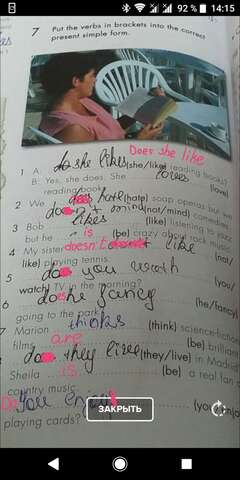 14:15
7 Put the verbs in brackets into the correct
present simple form.
Does she like
1 A: ...she likes (she/like) reading books
B: Yes, she does. She loves (love)
reading book
2 We hate (hate) soap operas but we
don't mind (not/mind) comedi
3 Bob likes (like) listening to jazz
but he is (be) crazy about rock music
4 My sister doesn't like (not/
like) playing tennis.
5 do you watch (you/
watch) TV in the morning?
6 does he fancy (he/fancy)
going to the park
7 Marion thinks (think) science-fiction
films are (be) brilliant
8 do they live (they/live) in Madrid
Sheila is (be) a real fan
country music.
You enjoy (you/enjoy
playing cards?
ЗАКРЫТЬ